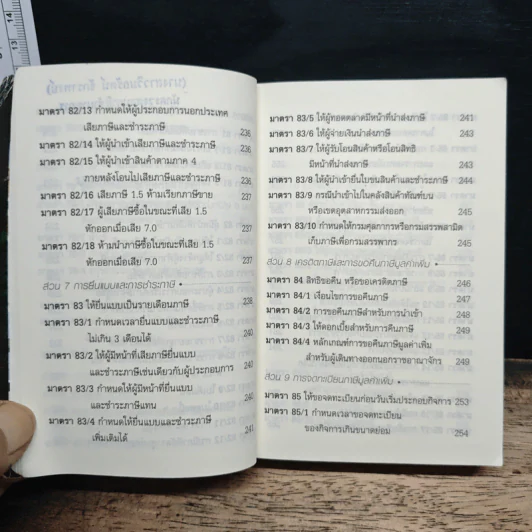 มาตรา 82/13 กำหนดให้ผู้ประกอบการนอกประเทศ
เสียภาษีและชำระภาษี 235
มาตรา 82/14 ให้ผู้นำเข้าเสียภาษีและชำระภาษี 236
มาตรา 82/15 ให้ผู้นำเข้าสินค้าตามภาค 4
ภายหลังโอนไปเสียภาษีและชำระภาษี 236
มาตรา 82/16 เสียภาษี 1.5 ห้ามเรียกภาษีขาย 237
มาตรา 82/17 ผู้เสียภาษีซื้อในขณะที่เสีย 1.5
หักออกเมื่อเสีย 7.0 237
มาตรา 82/18 ห้ามนำภาษีซื้อในขณะที่เสีย 1.5
หักออกเมื่อเสีย 7.0 237
ส่วน 7 การยื่นแบบและการชำระภาษี •
มาตรา 83 ให้ยื่นแบบเป็นรายเดือนภาษี 238
มาตรา 83/1 กำหนดเวลายื่นแบบและชำระภาษี
ไม่เกิน 3 เดือนได้ 240
มาตรา 83/2 ให้ผู้มีหน้าที่เสียภาษียื่นแบบ
และชำระภาษีเช่นเดียวกับผู้ประกอบการ 240
มาตรา 83/3 กำหนดให้ผู้มีหน้าที่ยื่นแบบ
และชำระภาษีแทน 240
มาตรา 83/4 กำหนดให้ยื่นแบบและชำระภาษี
เพิ่มเติมได้ 241
มาตรา 83/5 ให้ผู้ทอดตลาดมีหน้าที่นำส่งภาษี 241
มาตรา 83/6 ให้ผู้จ่ายเงินนำส่งภาษี 243
มาตรา 83/7 ให้ผู้รับโอนสินค้าหรือโอนสิทธิ
มีหน้าที่นำส่งภาษี 243
มาตรา 83/8 ให้ผู้นำเข้ายื่นใบขนสินค้าและชำระภาษี 244
มาตรา 83/9 กรณีนำเข้าไปในคลังสินค้าทัณฑ์บน
หรือเขตอุตสาหกรรมส่งออก 245
มาตรา 83/10 กำหนดให้กรมศุลกากรหรือกรมสรรพสามิต
เก็บภาษีเพื่อกรมสรรพากร 245
ส่วน 8 เครดิตภาษีและการขอคืนภาษีมูลค่าเพิ่ม •
มาตรา 84 สิทธิขอคืน หรือขอเครดิตภาษี 246
มาตรา 84/1 เงื่อนไขการขอคืนภาษี 247
มาตรา 84/2 การขอคืนภาษีสำหรับการนำเข้า 248
มาตรา 84/3 ให้ดอกเบี้ยสำหรับการคืนภาษี 249
มาตรา 84/4 หลักเกณฑ์การขอคืนภาษีมูลค่าเพิ่ม
สำหรับผู้เดินทางออกนอกราชอาณาจักร 249
ส่วน 9 การจดทะเบียนภาษีมูลค่าเพิ่ม •
มาตรา 85 ให้ขอจดทะเบียนก่อนวันเริ่มประกอบกิจการ 253
มาตรา 85/1 กำหนดเวลาขอจดทะเบียน
ของกิจการเกินขนาดย่อม 254